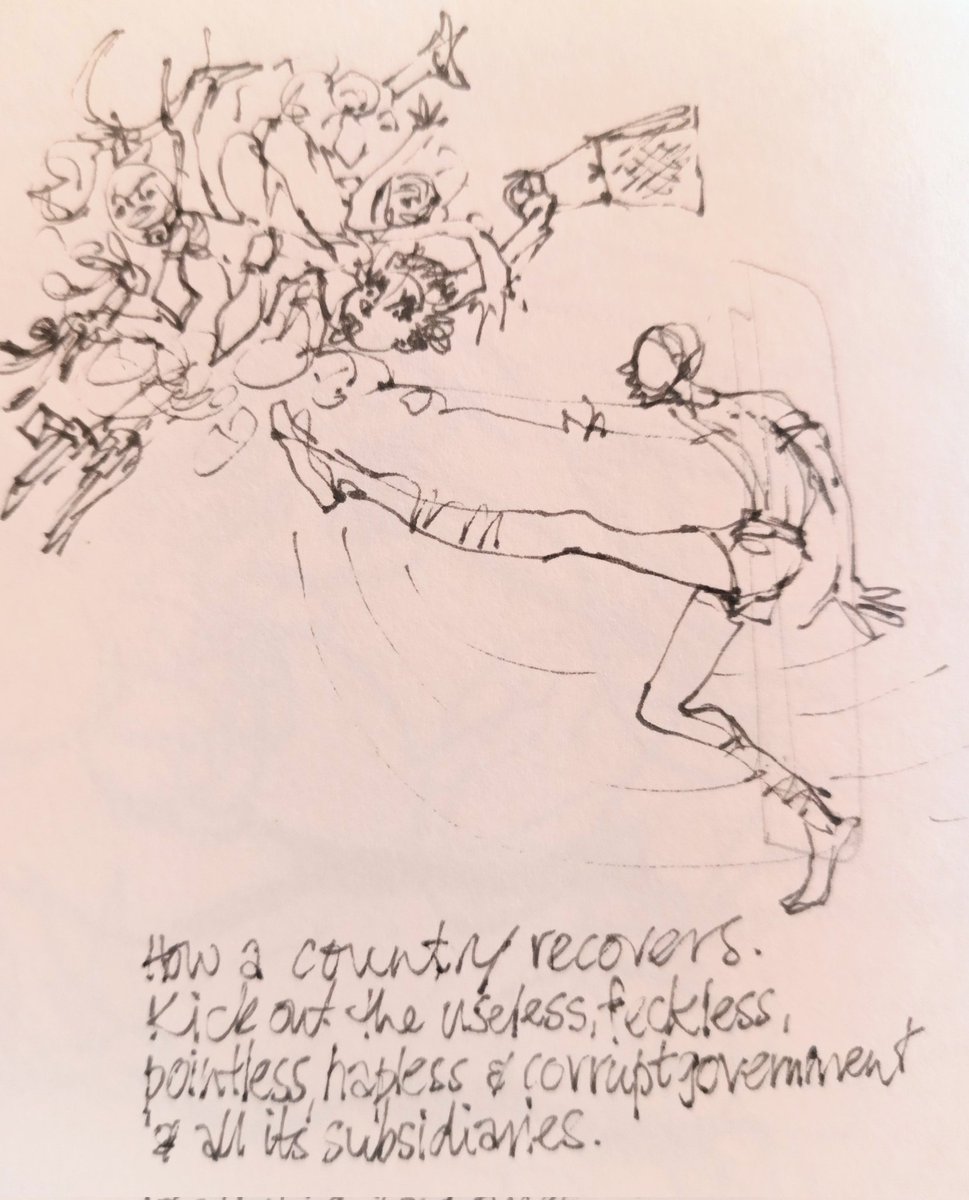 How a country recovers.
Kick out the useless, feckless,
pointless, hapless & corrupt government
& all its subsidiaries.